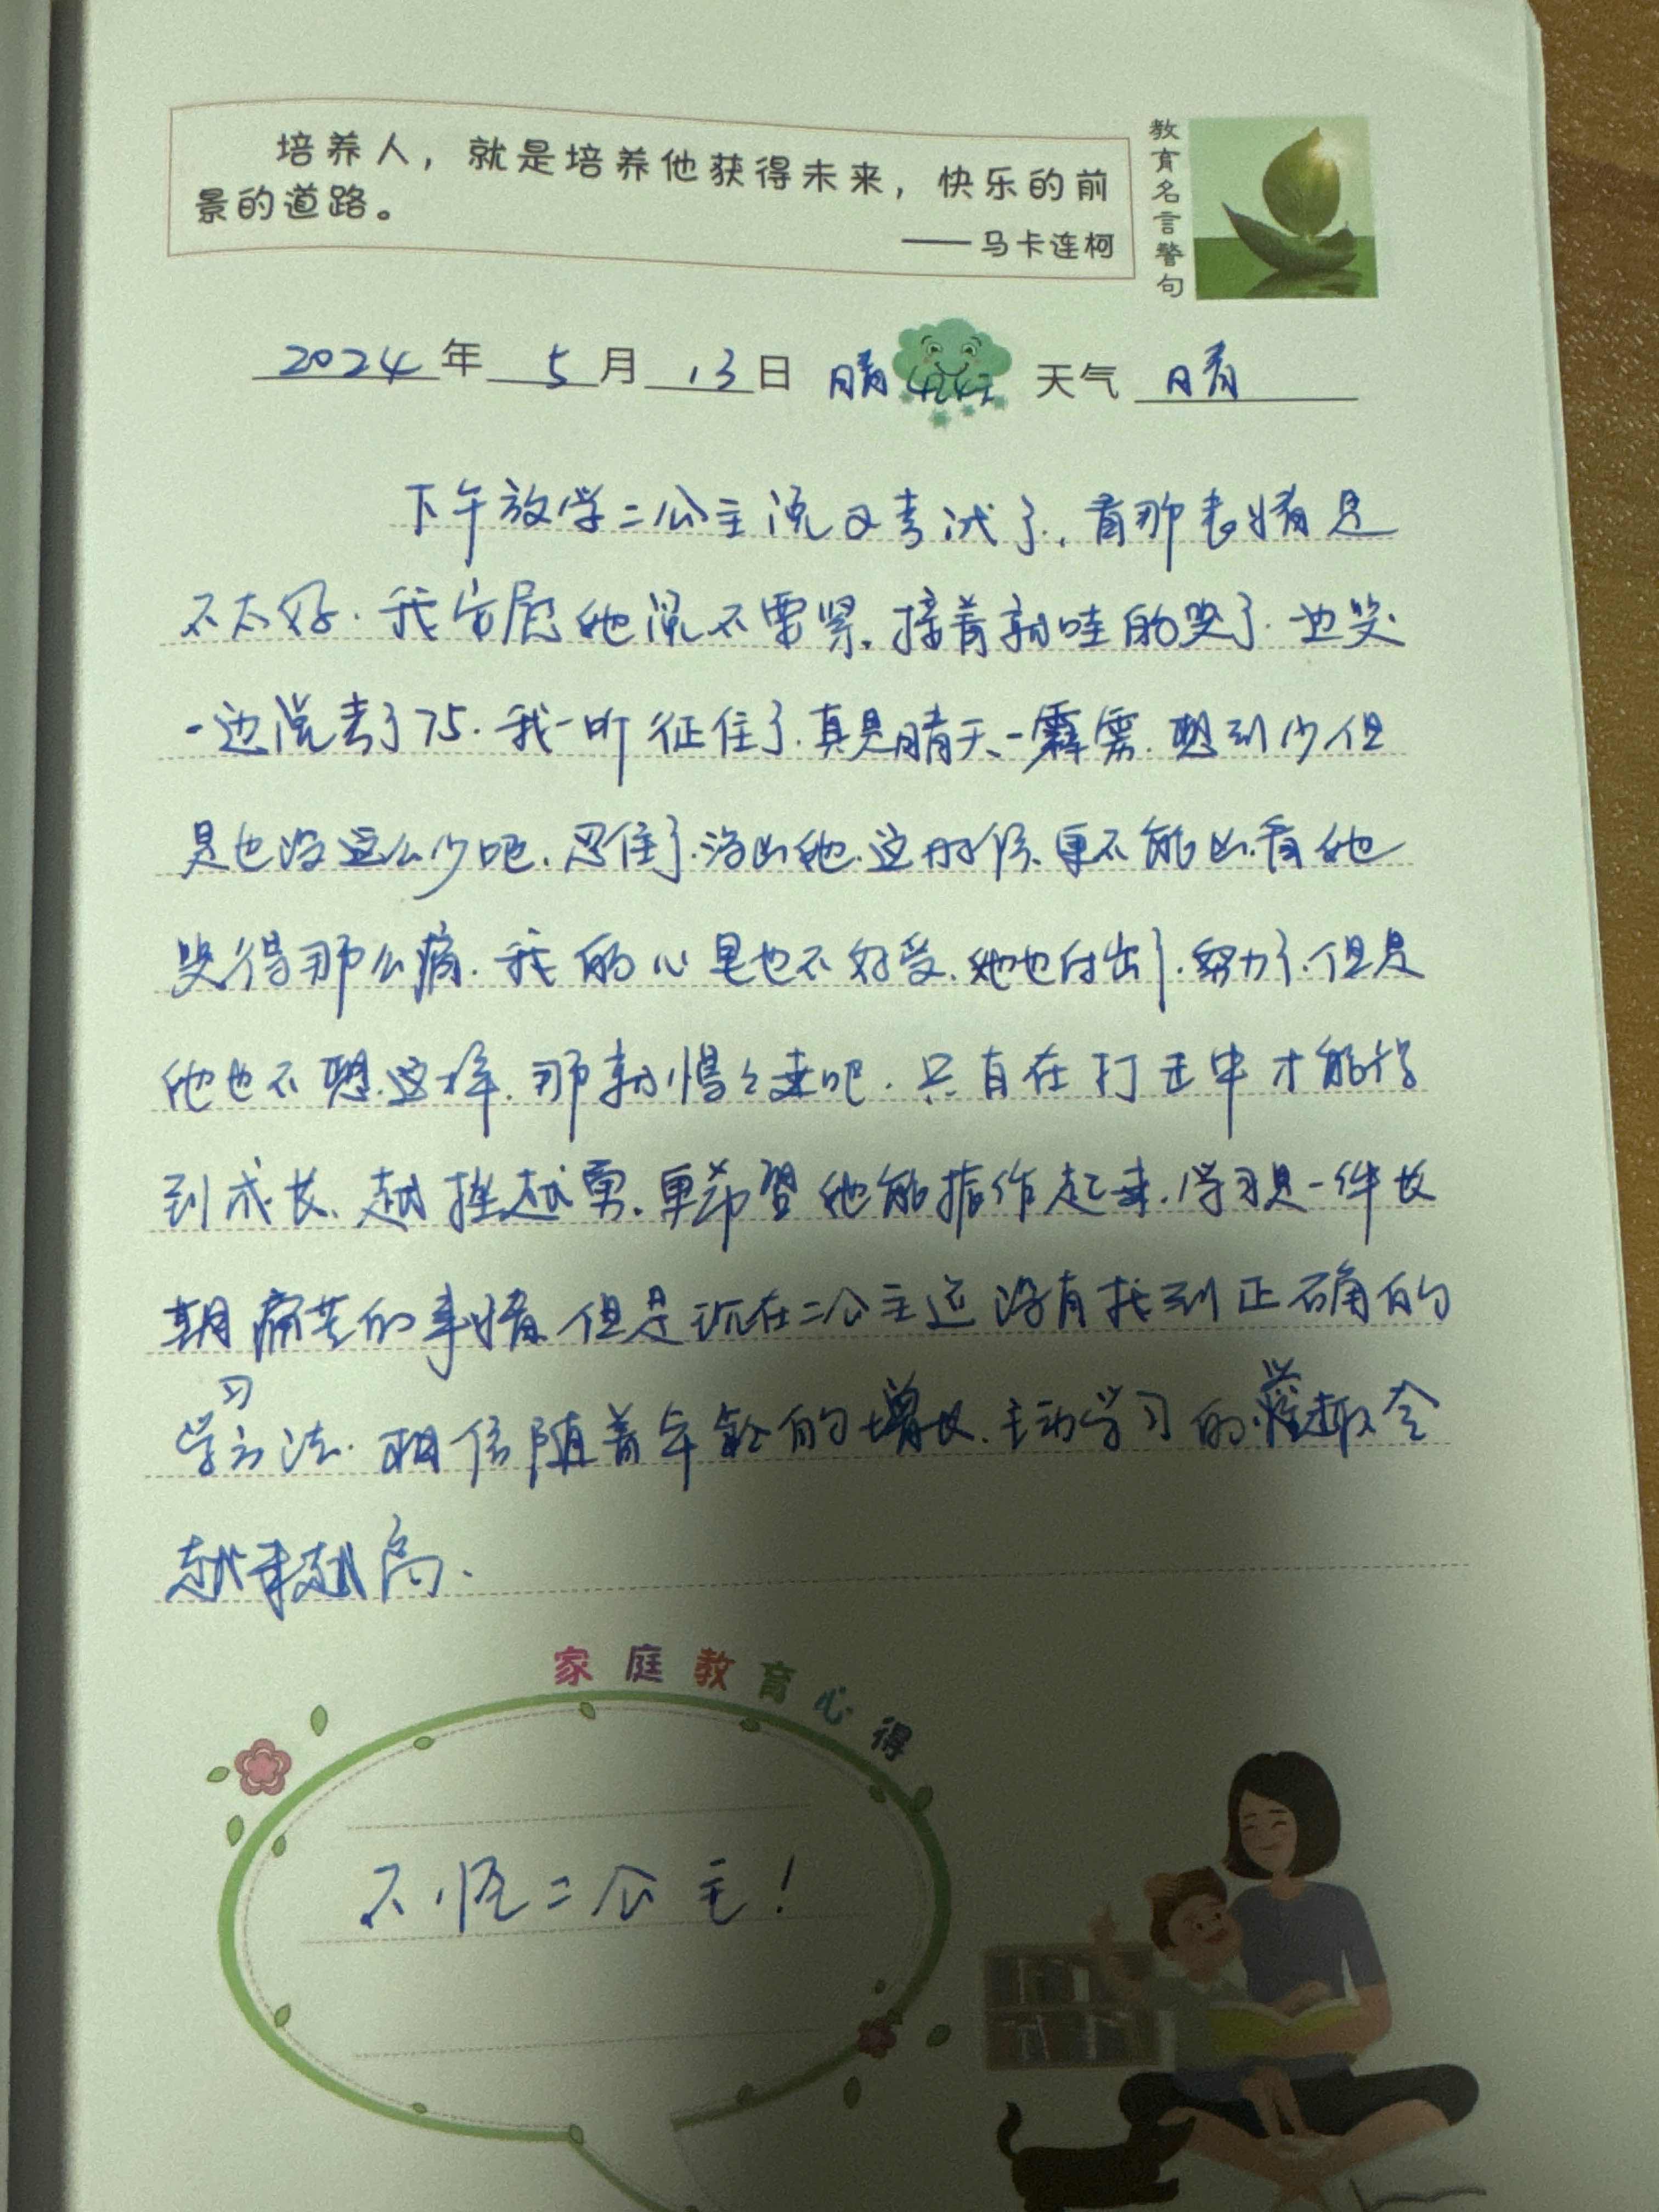 培养人，就是培养他获得未来，快乐的前
景的道路。
——马卡连柯
教育名言警句
2024年 5月 13日 晴 天气 晴
下午放学二公主说又考试了，看那表情是
不太好．我安慰她说不要紧．接着就哇的哭了．边哭
一边说考了75．我一听征住了．真是晴天一霹雳．想到少但
是也没这么少吧．忍住了．没凶她．这时候．更不能凶．看她
哭得那么痛．我的心里也不好受．她也付出了．努力了．但是
她也不想这样．那就慢々来吧．只有在打击中才能得
到成长．越挫越勇．更希望她能振作起来．学习是一件长
期痛苦的事情．但是现在二公主还没有找到正确的
学习方法．相信随着年龄的增长．主动学习的兴趣会
越来越高．
家庭教育心得
不怪二公主！